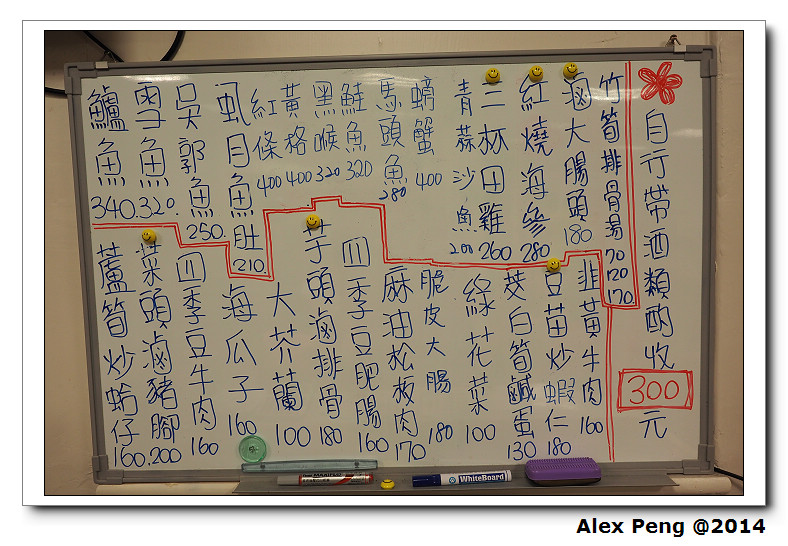 自行帶酒類酌收
300
元
竹筍排骨湯 70 120 170
滷大腸頭 180
紅燒海參 280
三杯田雞 260
青蒜沙魚 200
螃蟹 400
馬頭魚 280
鮭魚 320
黑喉 320
黃格 400
紅條 400
虱目魚肚 210
吳郭魚 250
雪魚 320
鱸魚 340
韭黃牛肉 160
豆苗炒蝦仁 180
茭白筍鹹蛋 130
綠花菜 100
脆皮大腸 180
麻油松阪肉 170
四季豆肥腸 160
芋頭滷排骨 180
大芥蘭 100
海瓜子 160
四季豆牛肉 160
菜頭滷豬腳 200
蘆筍炒蛤仔 160
WhiteBoard
Alex Peng @2014